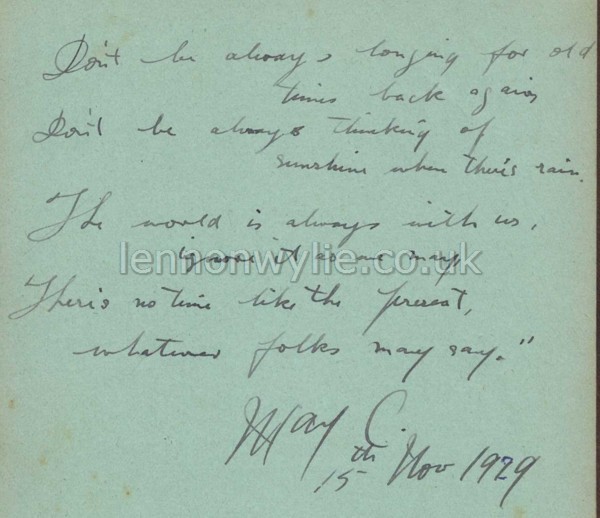 Don't be always longing for old
times back again
Don't be always thinking of
sunshine when there's rain.
The world is always with us,
ignore it as we may
There's no time like the present,
whatever folks may say."
May C.
15th Nov 1929
lennonwylie.co.uk